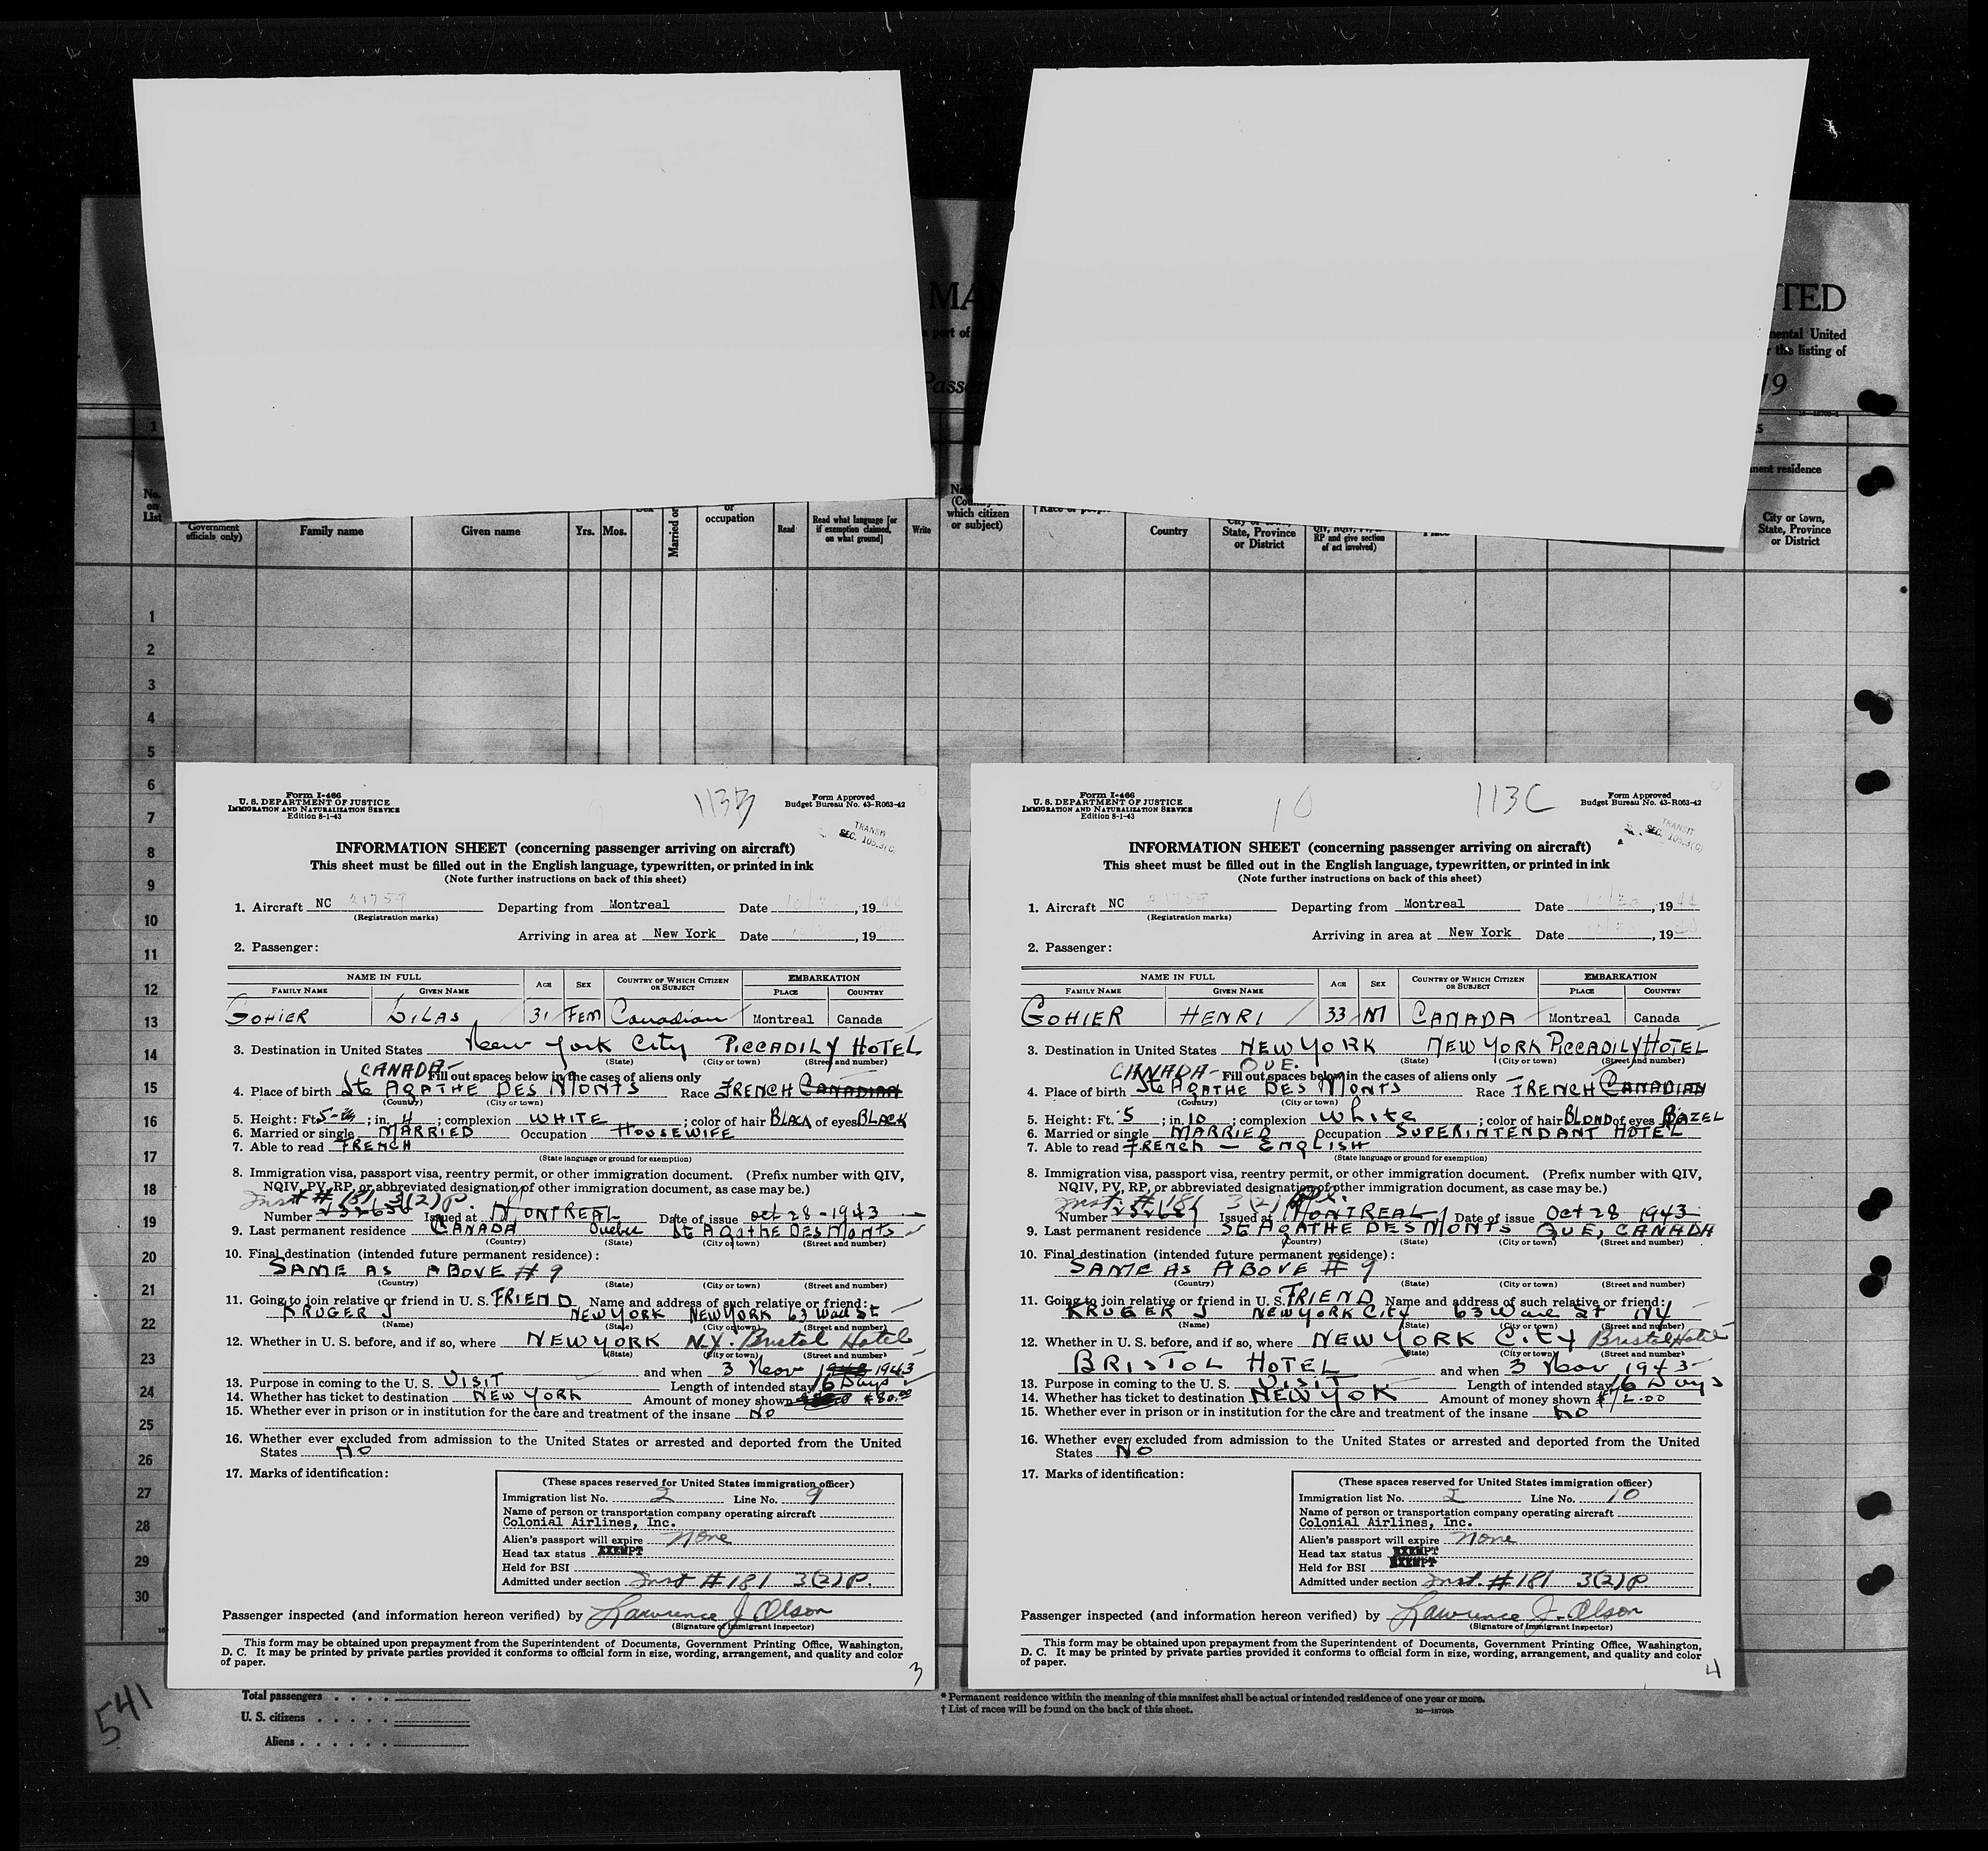 MA
TED
a part of
nental United
r the listing of
Passen
19
1
No. on List
Government officials only)
Family name
Given name
Yrs.
Mos.
Married or
or occupation
Read
Read what language [or if exemption claimed, on what ground]
Write
which citizen or subject)
Country
State, Province or District
RP and give section of act involved)
nent residence
City or town, State, Province or District
1
2
3
4
5
6
7
8
9
10
11
12
13
14
15
16
17
18
19
20
21
22
23
24
25
26
27
28
29
30
Form I-466
U. S. DEPARTMENT OF JUSTICE
IMMIGRATION AND NATURALIZATION SERVICE
Edition 8-1-43
113B
Form Approved
Budget Bureau No. 43-R063-42
TRANSIT
SEC. 105.3(C)
INFORMATION SHEET (concerning passenger arriving on aircraft)
This sheet must be filled out in the English language, typewritten, or printed in ink
(Note further instructions on back of this sheet)
1. Aircraft NC 21759 Departing from Montreal Date 10/30, 19
(Registration marks)
Arriving in area at New York Date , 19
2. Passenger:
NAME IN FULL AGE SEX COUNTRY OF WHICH CITIZEN OR SUBJECT EMBARKATION
FAMILY NAME GIVEN NAME PLACE COUNTRY
GOHIER LILAS 31 FEM Canadian Montreal Canada
3. Destination in United States New York City PICCADILY HOTEL
(State) (City or town) (Street and number)
CANADA- Fill out spaces below in the cases of aliens only
4. Place of birth Ste AGATHE DES MONTS Race FRENCH CANADIAN
(Country) (City or town)
5. Height: Ft. 5 ; in. 4 ; complexion WHITE ; color of hair BLACK of eyes BLACK
6. Married or single MARRIED Occupation HOUSEWIFE
7. Able to read FRENCH
(State language or ground for exemption)
8. Immigration visa, passport visa, reentry permit, or other immigration document. (Prefix number with QIV,
NQIV, PV, RP, or abbreviated designation of other immigration document, as case may be.)
Inst # 181 3(2)P.
Number Issued at MONTREAL Date of issue Oct 28-1943
9. Last permanent residence CANADA Quebec Ste Agathe DES Monts
(Country) (State) (City or town) (Street and number)
10. Final destination (intended future permanent residence):
SAME AS ABOVE # 9
(Country) (State) (City or town) (Street and number)
11. Going to join relative or friend in U. S. FRIEND Name and address of such relative or friend:
KRUGER J NEW YORK NEW YORK 63 Wall St
(Name) (State) (City or town) (Street and number)
12. Whether in U. S. before, and if so, where NEW YORK N.Y. Bristol Hotel
(State) (City or town) (Street and number)
and when 3 Nov 1943
13. Purpose in coming to the U. S. VISIT Length of intended stay 6 Days
14. Whether has ticket to destination NEW YORK Amount of money shown $80.00
15. Whether ever in prison or in institution for the care and treatment of the insane NO
16. Whether ever excluded from admission to the United States or arrested and deported from the United
States NO
17. Marks of identification:
(These spaces reserved for United States immigration officer)
Immigration list No. 2 Line No. 9
Name of person or transportation company operating aircraft
Colonial Airlines, Inc.
Alien's passport will expire None
Head tax status EXEMPT
Held for BSI
Admitted under section Inst #181 3(2)P.
Passenger inspected (and information hereon verified) by Lawrence J Olson
(Signature of Immigrant Inspector)
This form may be obtained upon prepayment from the Superintendent of Documents, Government Printing Office, Washington,
D. C. It may be printed by private parties provided it conforms to official form in size, wording, arrangement, and quality and color
of paper.
3
Form I-466
U. S. DEPARTMENT OF JUSTICE
IMMIGRATION AND NATURALIZATION SERVICE
Edition 8-1-43
10
113C
Form Approved
Budget Bureau No. 43-R063-42
TRANSIT
SEC. 105.3(C)
INFORMATION SHEET (concerning passenger arriving on aircraft)
This sheet must be filled out in the English language, typewritten, or printed in ink
(Note further instructions on back of this sheet)
1. Aircraft NC 21759 Departing from Montreal Date 10/30, 19
(Registration marks)
Arriving in area at New York Date 10/30, 19
2. Passenger:
NAME IN FULL AGE SEX COUNTRY OF WHICH CITIZEN OR SUBJECT EMBARKATION
FAMILY NAME GIVEN NAME PLACE COUNTRY
GOHIER HENRI 33 M CANADA Montreal Canada
3. Destination in United States NEW YORK NEW YORK PICCADILY HOTEL
(State) (City or town) (Street and number)
CANADA- QUE. Fill out spaces below in the cases of aliens only
4. Place of birth Ste AGATHE DES MONTS Race FRENCH CANADIAN
(Country) (City or town)
5. Height: Ft. 5 ; in. 10 ; complexion White ; color of hair BLOND of eyes HAZEL
6. Married or single MARRIED Occupation SUPERINTENDANT HOTEL
7. Able to read FRENCH - ENGLISH
(State language or ground for exemption)
8. Immigration visa, passport visa, reentry permit, or other immigration document. (Prefix number with QIV,
NQIV, PV, RP, or abbreviated designation of other immigration document, as case may be.)
Inst. # 181 3(2)
Number Issued at MONTREAL Date of issue Oct 28 1943
9. Last permanent residence Ste AGATHE DES MONTS QUE, CANADA
(Country) (State) (City or town) (Street and number)
10. Final destination (intended future permanent residence):
SAME AS ABOVE # 9
(Country) (State) (City or town) (Street and number)
11. Going to join relative or friend in U. S. FRIEND Name and address of such relative or friend:
KRUGER J NEW YORK CITY 63 Wall St NY
(Name) (State) (City or town) (Street and number)
12. Whether in U. S. before, and if so, where NEW YORK CITY Bristol Hotel
(State) (City or town) (Street and number)
BRISTOL HOTEL and when 3 Nov 1943
13. Purpose in coming to the U. S. VISIT Length of intended stay 6 Days
14. Whether has ticket to destination NEW YOK Amount of money shown $72.00
15. Whether ever in prison or in institution for the care and treatment of the insane NO
16. Whether ever excluded from admission to the United States or arrested and deported from the United
States NO
17. Marks of identification:
(These spaces reserved for United States immigration officer)
Immigration list No. 2 Line No. 10
Name of person or transportation company operating aircraft
Colonial Airlines, Inc.
Alien's passport will expire None
Head tax status EXEMPT
Held for BSI EXEMPT
Admitted under section Inst. #181 3(2)P
Passenger inspected (and information hereon verified) by Lawrence J. Olson
(Signature of Immigrant Inspector)
This form may be obtained upon prepayment from the Superintendent of Documents, Government Printing Office, Washington,
D. C. It may be printed by private parties provided it conforms to official form in size, wording, arrangement, and quality and color
of paper.
4
541
Total passengers
U. S. citizens
Aliens
* Permanent residence within the meaning of this manifest shall be actual or intended residence of one year or more.
† List of races will be found on the back of this sheet.